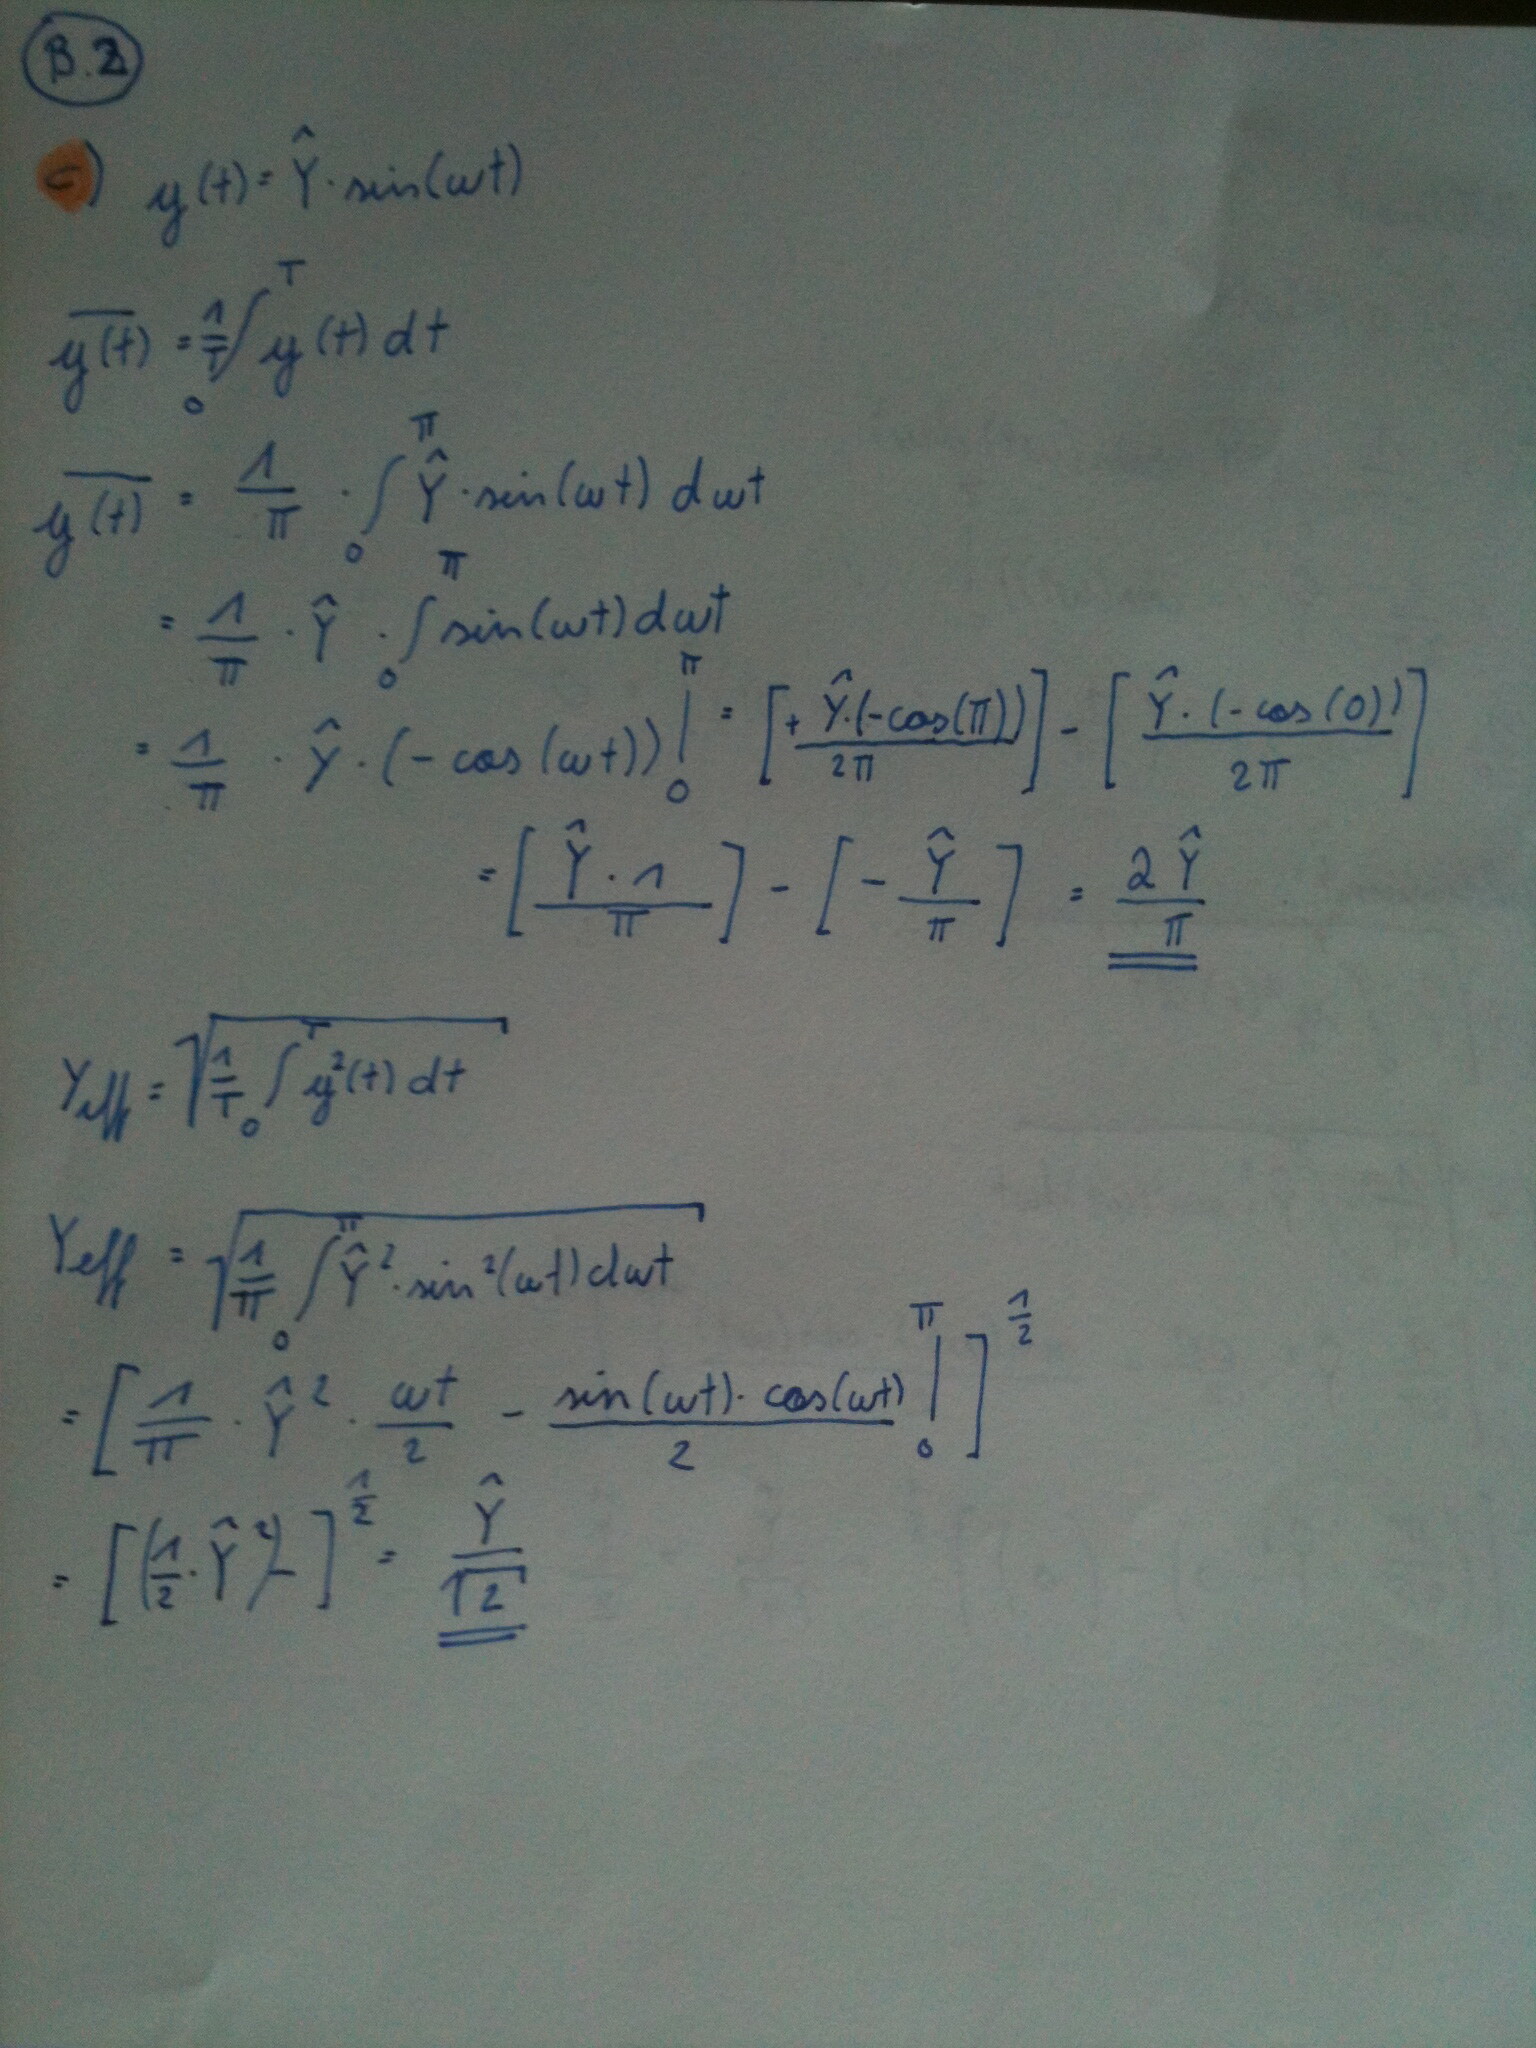 B.2
c) y(t) = Ŷ · sin(ωt)
y(t)̅ = 1/T ∫₀ᵀ y(t) dt
y(t)̅ = 1/π · ∫₀^π Ŷ · sin(ωt) dωt
= 1/π · Ŷ · ∫₀^π sin(ωt) dωt
= 1/π · Ŷ · (-cos(ωt)) |₀^π = [+ Ŷ·(-cos(π)) / 2π] - [Ŷ · (-cos(0)) / 2π]
= [Ŷ · 1 / π] - [- Ŷ/π] = 2Ŷ/π
Yeff = √(1/T ∫₀ᵀ y²(t) dt)
Yeff = √(1/π ∫₀^π Ŷ² · sin²(ωt) dωt)
= [1/π · Ŷ² · ωt/2 - sin(ωt) · cos(ωt)/2 |₀^π]^(1/2)
= [(1/2 · Ŷ²) -]^(1/2) = Ŷ/√2